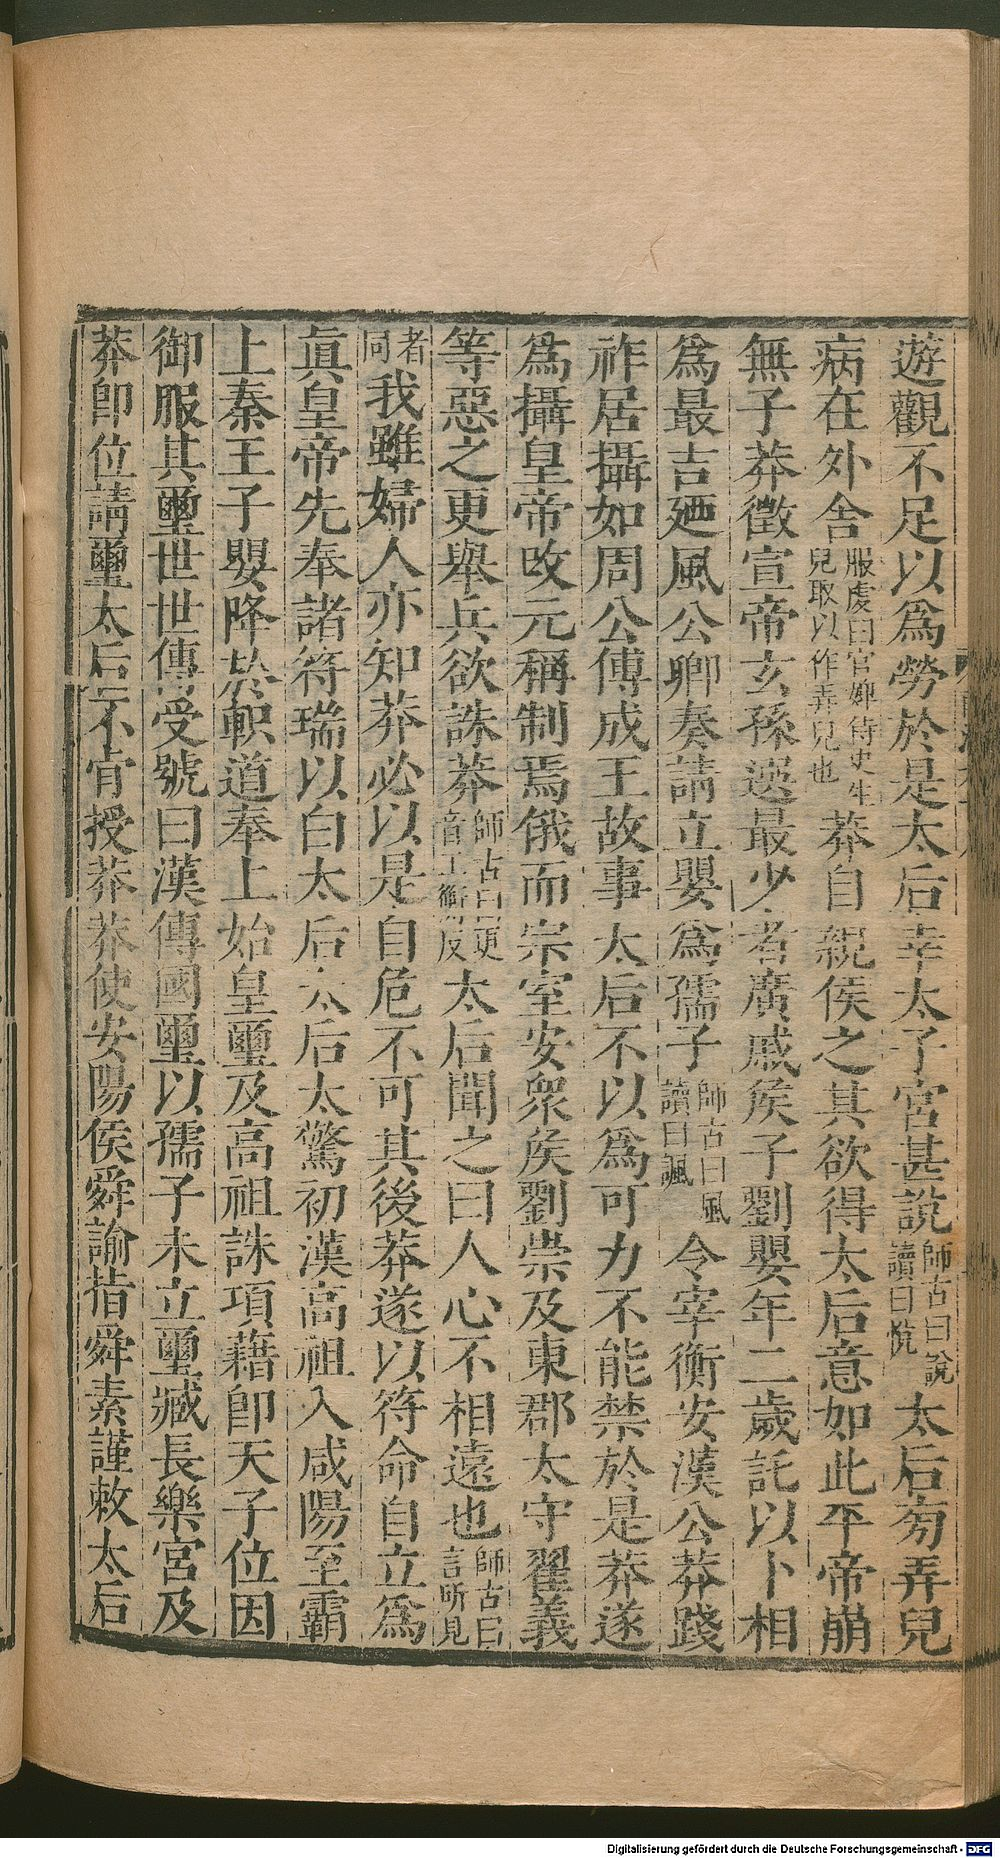 遊觀不足以爲勞於是太后幸太子宮甚說師古曰說讀曰恱太后旁弄兒
病在外舍服虔曰官婢侍史生兒取以作弄兒也莽自親侯之其欲得太后意如此平帝崩
無子莽徵宣帝玄孫選最少者廣戚侯子劉嬰年二歲託以卜相
爲最吉廼風公卿奏請立嬰爲孺子師古曰風讀曰諷令宰衡安漢公莽踐
祚居攝如周公傅成王故事太后不以爲可力不能禁於是莽遂
爲攝皇帝改元稱制焉俄而宗室安衆侯劉崇及東郡太守翟義
等惡之更舉兵欲誅莽師古曰更音工衡反太后聞之曰人心不相遠也師古曰言所見
者同我雖婦人亦知莽必以是自危不可其後莽遂以符命自立爲
眞皇帝先奉諸符瑞以白太后太后太驚初漢高祖入咸陽至霸
上秦王子嬰降於軹道奉上始皇璽及高祖誅項藉卽天子位因
御服其璽世世傳受號曰漢傳國璽以孺子未立璽臧長樂宮及
莽卽位請璽太后不肯授莽莽使安陽侯舜諭指舜素謹敕太后
Digitalisierung gefördert durch die Deutsche Forschungsgemeinschaft - DFG